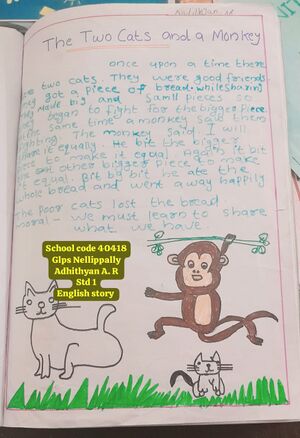 The Two Cats and a Monkey
once upon a time there
two cats. They were good friends.
got a piece of bread. while sharing
made big and samll pieces so
began to fight for the bigger piece
same time a monkey saw them
fighting. The monkey said I will
share it equally. He bit the bigger
to make it equal. Again it bit
other bigger piece to make
it equal. Bit by bit he ate the
whole bread and went away happily
The poor cats lost the bread.
moral - we must learn to share
what we have.
School code 40418
Glps Nellippally
Adhithyan A. R
Std 1
English story